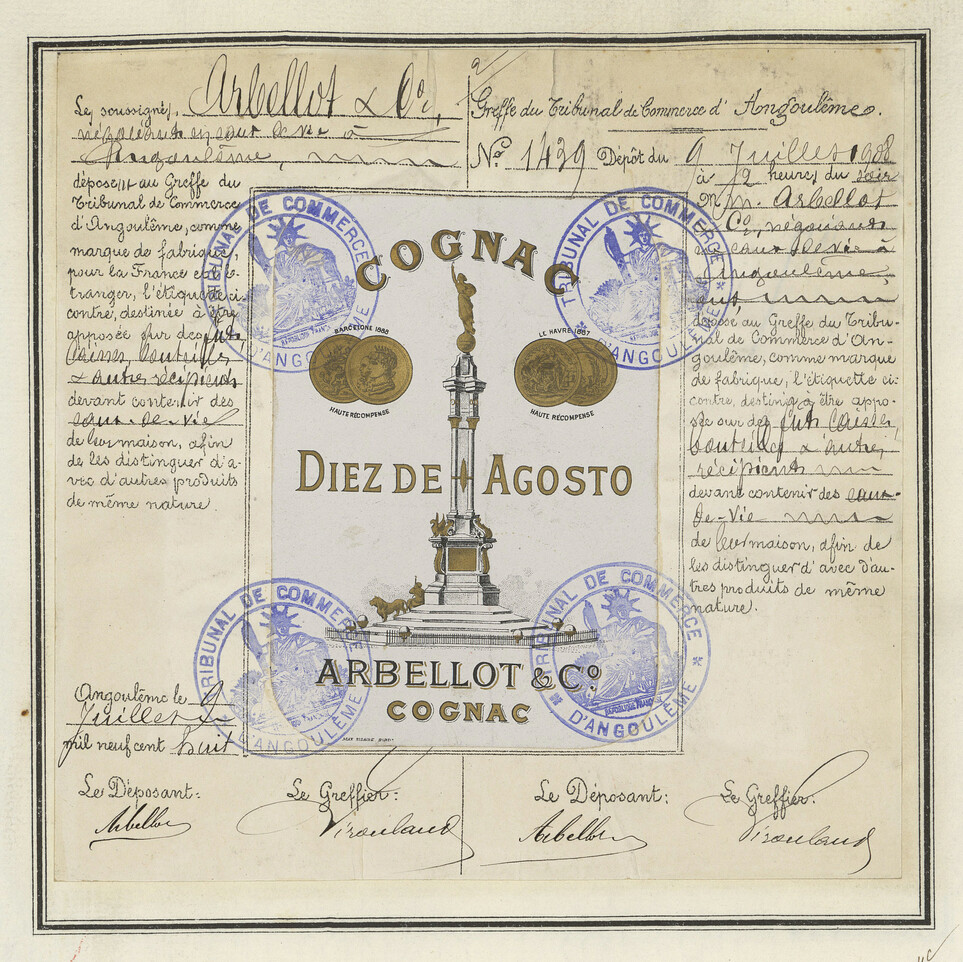 Le soussigné, Arbellot & Co,
négociants en eaux de vie à
Angoulême,
dépose nt au Greffe du
Tribunal de Commerce
d'Angoulême, comme
marque de fabrique,
pour la France et l'é-
tranger, l'étiquette ci-
contre, destinée à être
apposée sur des fûts
caisses, bouteilles
& autres récipients
devant contenir des
eaux-de-vie
de leur maison, afin
de les distinguer d'a-
vec d'autres produits
de même nature.
Angoulême le 9
Juillet
mil neuf cent huit
Le Déposant:
Arbellot
Le Greffier:
COGNAC
BARCELONE 1888
HAUTE RÉCOMPENSE
LE HAVRE 1887
HAUTE RÉCOMPENSE
DIEZ DE AGOSTO
ARBELLOT & Co
COGNAC
TRIBUNAL DE COMMERCE
D'ANGOULÊME
TRIBUNAL DE COMMERCE
D'ANGOULÊME
TRIBUNAL DE COMMERCE
D'ANGOULÊME
TRIBUNAL DE COMMERCE
D'ANGOULÊME
RÉPUBLIQUE FRANÇAISE
Greffe du Tribunal de Commerce d'Angoulême.
No 1439 Dépôt du 9 Juillet 1908
à 2 heures du soir
M. Arbellot
& Co, négociants
en eaux de vie à
Angoulême,
ont
déposé au Greffe du Tribu-
nal de Commerce d'An-
goulême, comme marque
de fabrique, l'étiquette ci-
contre, destinée à être appo-
sée sur des fûts caisses,
bouteilles & autres
récipients
devant contenir des eaux-
de-vie
de leur maison, afin de
les distinguer d'avec d'au-
tres produits de même
nature.
Le Déposant:
Arbellot
Le Greffier: